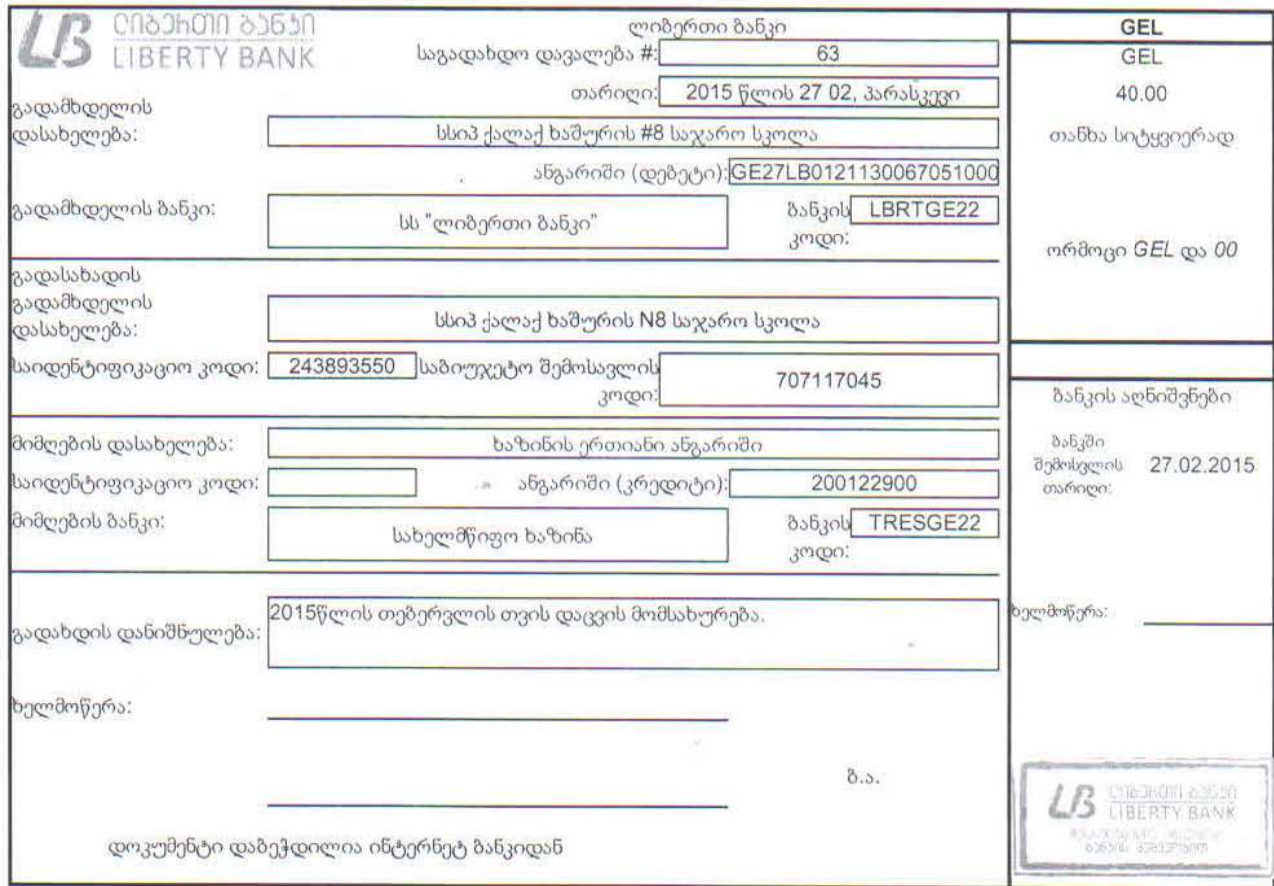 ლიბერთი ბანკი
LIBERTY BANK
ლიბერთი ბანკი
საგადახდო დავალება #: 63
თარიღი: 2015 წლის 27 02, პარასკევი
გადამხდელის
დასახელება: სსიპ ქალაქ ხაშურის #8 საჯარო სკოლა
ანგარიში (დებეტი): GE27LB0121130067051000
გადამხდელის ბანკი: სს "ლიბერთი ბანკი" ბანკის კოდი: LBRTGE22
გადასახადის
გადამხდელის
დასახელება: სსიპ ქალაქ ხაშურის N8 საჯარო სკოლა
საიდენტიფიკაციო კოდი: 243893550 საბიუჯეტო შემოსავლის კოდი: 707117045
მიმღების დასახელება: ხაზინის ერთიანი ანგარიში
საიდენტიფიკაციო კოდი: ანგარიში (კრედიტი): 200122900
მიმღების ბანკი: სახელმწიფო ხაზინა ბანკის კოდი: TRESGE22
გადახდის დანიშნულება: 2015წლის თებერვლის თვის დაცვის მომსახურება.
ხელმოწერა:
ბ.ა.
დოკუმენტი დაბეჭდილია ინტერნეტ ბანკიდან
GEL
GEL
40.00
თანხა სიტყვიერად
ორმოცი GEL და 00
ბანკის აღნიშვნები
ბანკში
შემოსვლის 27.02.2015
თარიღი:
ხელმოწერა:
LB ლიბერთი ბანკი
LIBERTY BANK